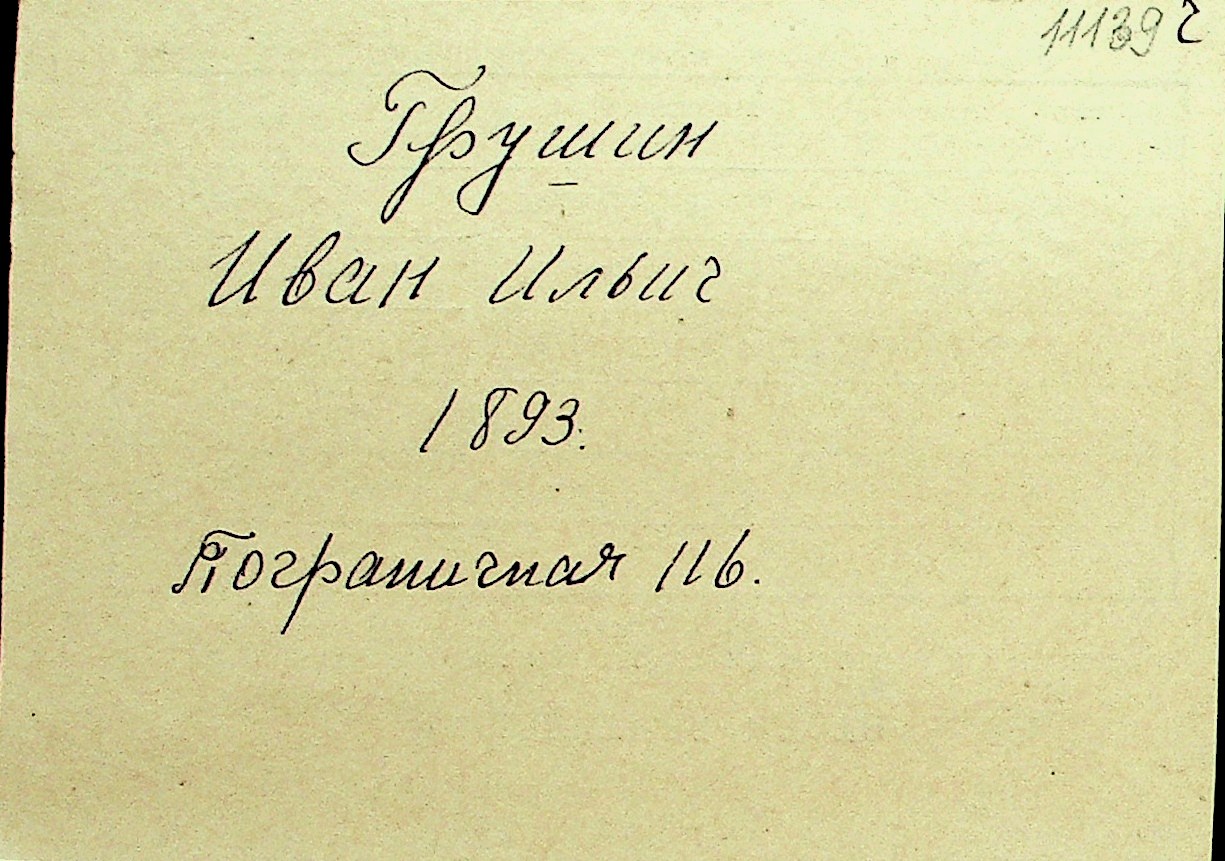 11139 г
Грушин
Иван Ильич
1893.
Пограничная 116.